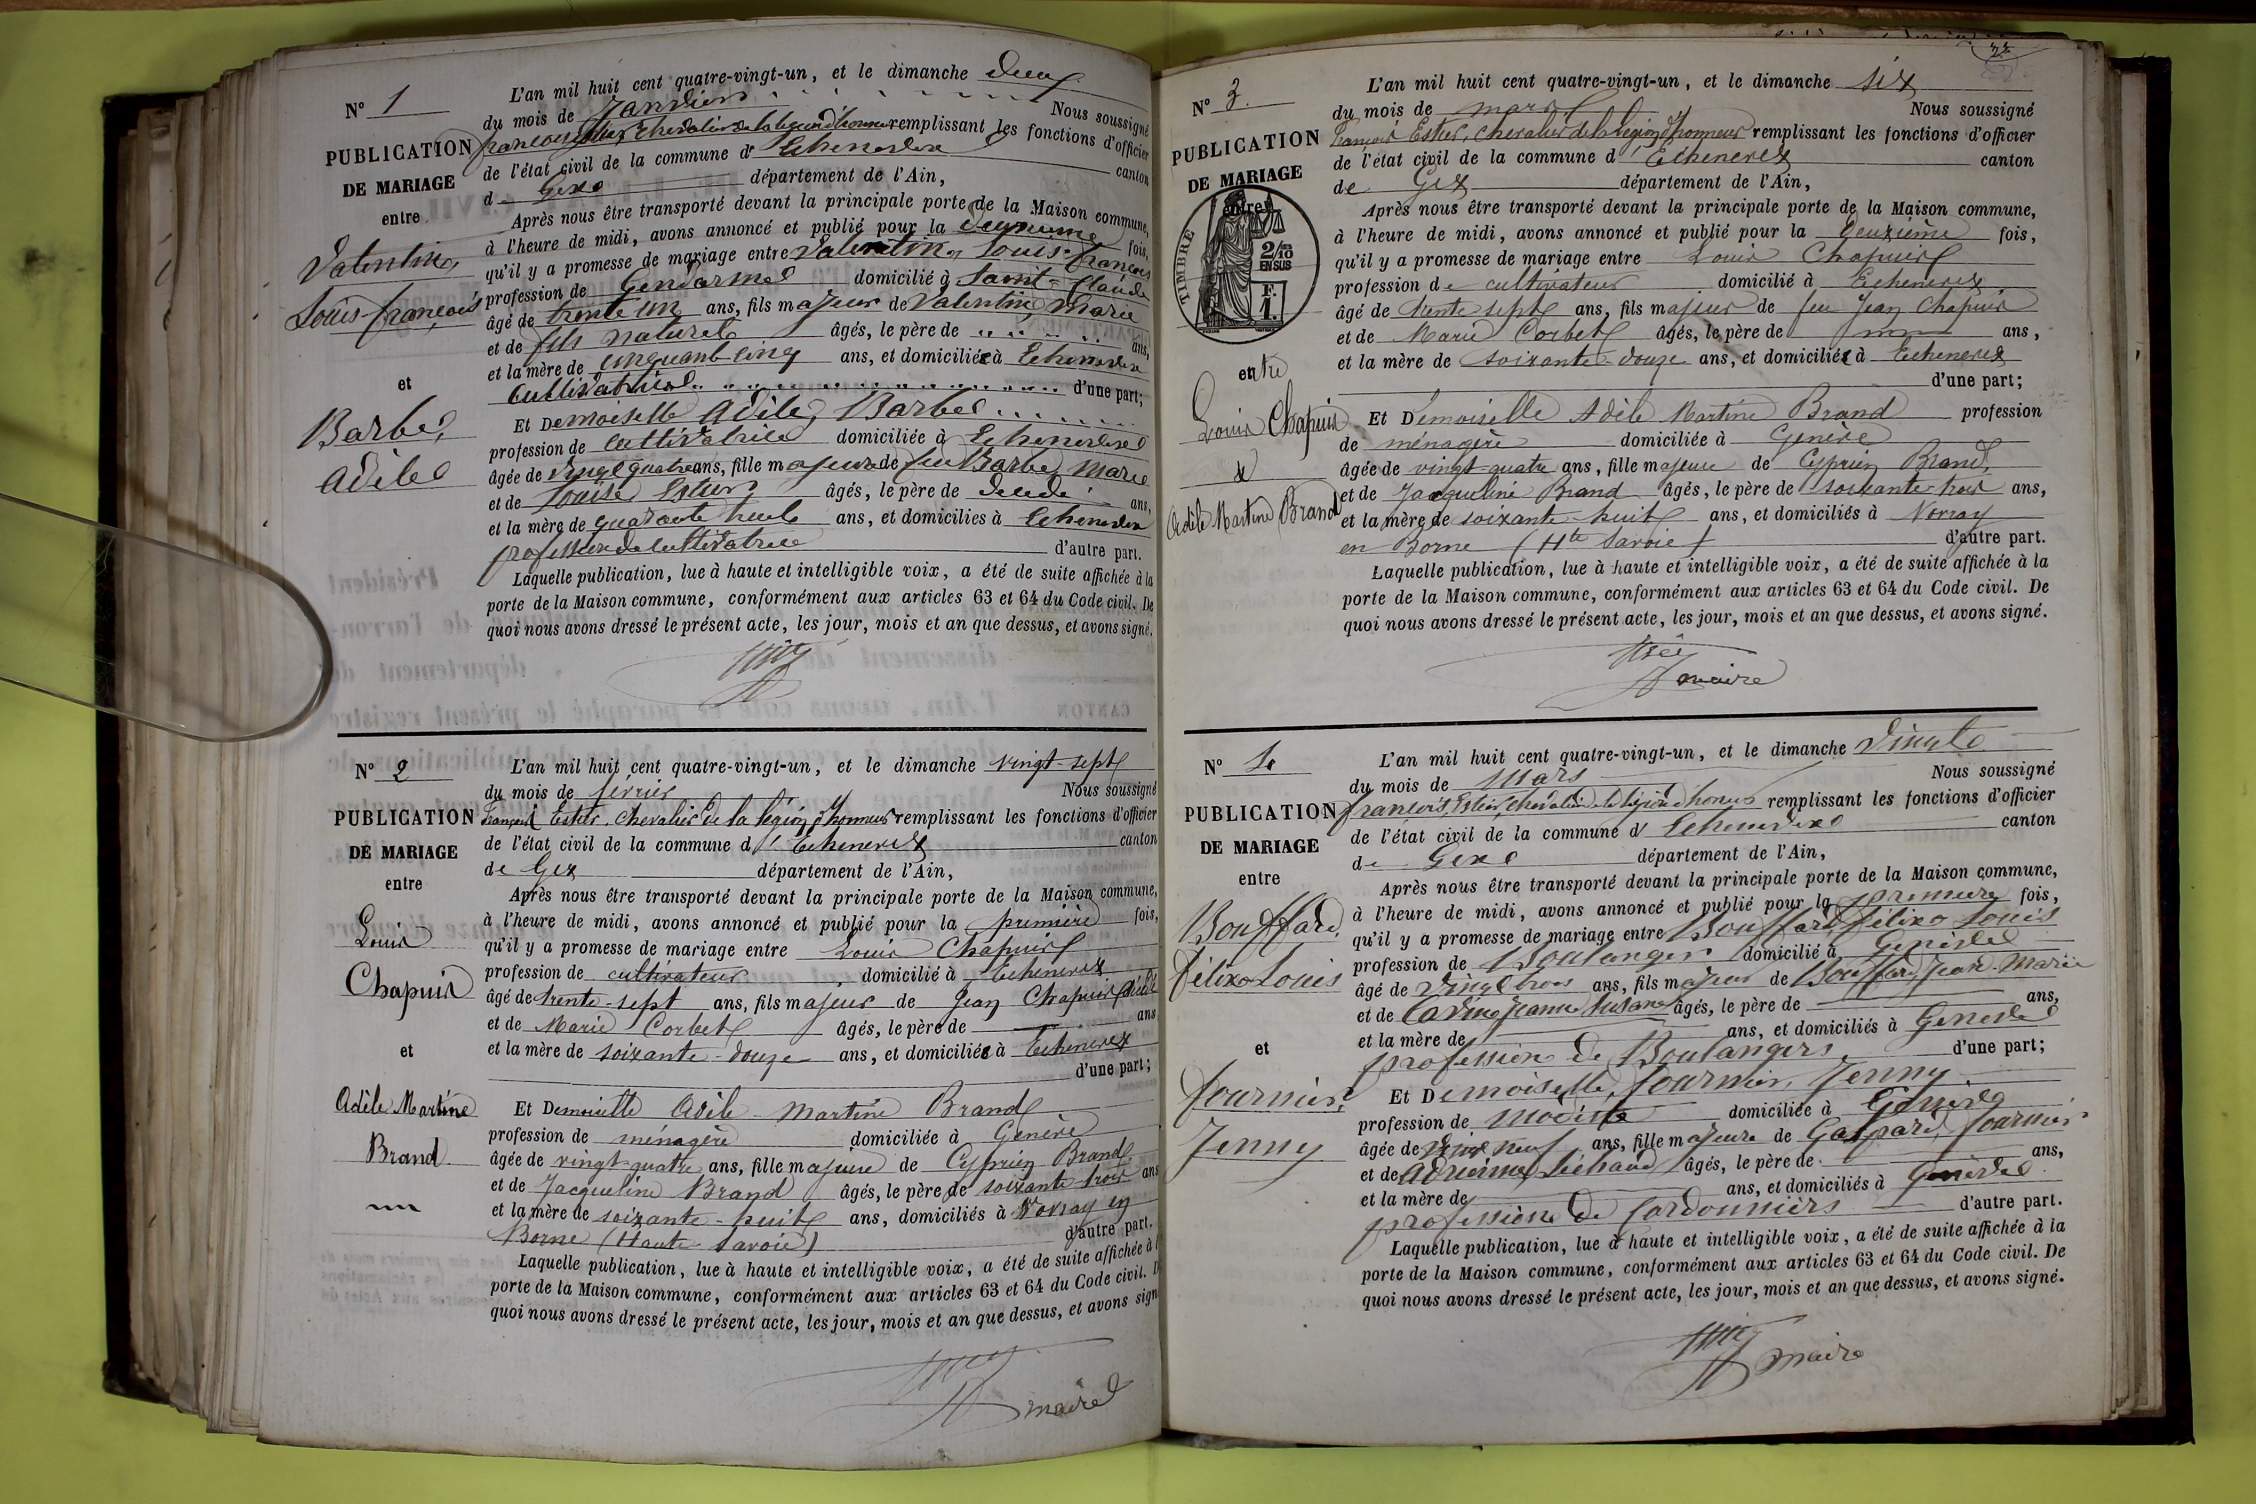 N° 1
PUBLICATION
DE MARIAGE
entre
Valentin,
Louis françois
et
Barbe,
Adèle
L'an mil huit cent quatre-vingt-un, et le dimanche deux
du mois de Janvier Nous soussigné
françois Estier, Chevalier de la legion d'honneur remplissant les fonctions d'officier
de l'état civil de la commune d' Echenevex canton
d Gex département de l'Ain,
Après nous être transporté devant la principale porte de la Maison commune,
à l'heure de midi, avons annoncé et publié pour la deuxieme fois,
qu'il y a promesse de mariage entre Valentin, Louis-françois
profession de Gendarme domicilié à Saint-Claude
âgé de trente un ans, fils majeur de Valentin, Marie
et de fils naturel âgés, le père de ans,
et la mère de cinquante cinq ans, et domiciliée à Echenevex
Cultivatrice d'une part;
Et Demoiselle Adèle, Barbe
profession de cultivatrice domiciliée à Echenevex
âgée de vingt quatre ans, fille majeure de feu Barbe, Marie
et de Louise Estier âgés, le père de décédé ans,
et la mère de quarante huit ans, et domiciliés à Echenevex
profession de cultivatrice d'autre part.
Laquelle publication, lue à haute et intelligible voix, a été de suite affichée à la
porte de la Maison commune, conformément aux articles 63 et 64 du Code civil. De
quoi nous avons dressé le présent acte, les jour, mois et an que dessus, et avons signé.
N° 2
PUBLICATION
DE MARIAGE
entre
Louis
Chapuis
et
Adèle Martine
Brand
L'an mil huit cent quatre-vingt-un, et le dimanche vingt-sept
du mois de février Nous soussigné
François Estier, Chevalier de la légion d'honneur remplissant les fonctions d'officier
de l'état civil de la commune d' Echenevex canton
de Gex département de l'Ain,
Après nous être transporté devant la principale porte de la Maison commune,
à l'heure de midi, avons annoncé et publié pour la première fois,
qu'il y a promesse de mariage entre Louis Chapuis
profession de cultivateur domicilié à Echenevex
âgé de trente-sept ans, fils majeur de Jean Chapuis
et de Marie Corbet âgés, le père de ans
et la mère de soixante-douze ans, et domiciliée à Echenevex
d'une part;
Et Demoiselle Adèle Martine Brand
profession de ménagère domiciliée à Genève
âgée de vingt-quatre ans, fille majeure de Cyprien Brand
et de Jacqueline Brand âgés, le père de soixante-trois ans
et la mère de soixante-huit ans, domiciliés à Vovray en
Borne (Haute Savoie) d'autre part.
Laquelle publication, lue à haute et intelligible voix, a été de suite affichée à
porte de la Maison commune, conformément aux articles 63 et 64 du Code civil.
quoi nous avons dressé le présent acte, les jour, mois et an que dessus, et avons sign
maire
22
N° 3.
PUBLICATION
DE MARIAGE
entre
TIMBRE
2/10
EN SUS
F.
1.
entre
Louis Chapuis
&
Adèle Martine Brand
L'an mil huit cent quatre-vingt-un, et le dimanche six
du mois de mars Nous soussigné
François Estier, chevalier de la légion d'honneur remplissant les fonctions d'officier
de l'état civil de la commune d' Echenevex canton
de Gex département de l'Ain,
Après nous être transporté devant la principale porte de la Maison commune,
à l'heure de midi, avons annoncé et publié pour la deuxième fois,
qu'il y a promesse de mariage entre Louis Chapuis
profession de cultivateur domicilié à Echenevex
âgé de trente sept ans, fils majeur de feu Jean Chapuis
et de Marie Corbet âgés, le père de ans,
et la mère de soixante-douze ans, et domiciliée à Echenevex
d'une part;
Et Demoiselle Adèle Martine Brand profession
de ménagère domiciliée à Genève
âgée de vingt-quatre ans, fille majeure de Cyprien Brand,
et de Jacqueline Brand âgés, le père de soixante-trois ans,
et la mère de soixante-huit ans, et domiciliés à Vovray
en Borne (Hte Savoie) d'autre part.
Laquelle publication, lue à haute et intelligible voix, a été de suite affichée à la
porte de la Maison commune, conformément aux articles 63 et 64 du Code civil. De
quoi nous avons dressé le présent acte, les jour, mois et an que dessus, et avons signé.
maire
N° 4
PUBLICATION
DE MARIAGE
entre
Bouffard,
félix Louis
et
fournier,
Jenny
L'an mil huit cent quatre-vingt-un, et le dimanche vingt
du mois de Mars Nous soussigné
françois, Estier, chevalier de la legion d'honneur remplissant les fonctions d'officier
de l'état civil de la commune d' Echenevex canton
de Gex département de l'Ain,
Après nous être transporté devant la principale porte de la Maison commune,
à l'heure de midi, avons annoncé et publié pour la premiere fois,
qu'il y a promesse de mariage entre Bouffard, félix Louis
profession de Boulanger domicilié à Genève
âgé de vingt trois ans, fils majeur de Bouffard, Jean-Marie
et de Jeanne Susane âgés, le père de ans,
et la mère de ans, et domiciliés à Genève
profession de Boulangers, d'une part;
Et Demoiselle, fournier, Jenny
profession de modiste domiciliée à Genève
âgée de neuf ans, fille majeure de Gaspard, fournier
et de Adrienne âgés, le père de ans,
et la mère de ans, et domiciliés à Genève
profession de Cordonniers d'autre part.
Laquelle publication, lue à haute et intelligible voix, a été de suite affichée à la
porte de la Maison commune, conformément aux articles 63 et 64 du Code civil. De
quoi nous avons dressé le présent acte, les jour, mois et an que dessus, et avons signé.
maire